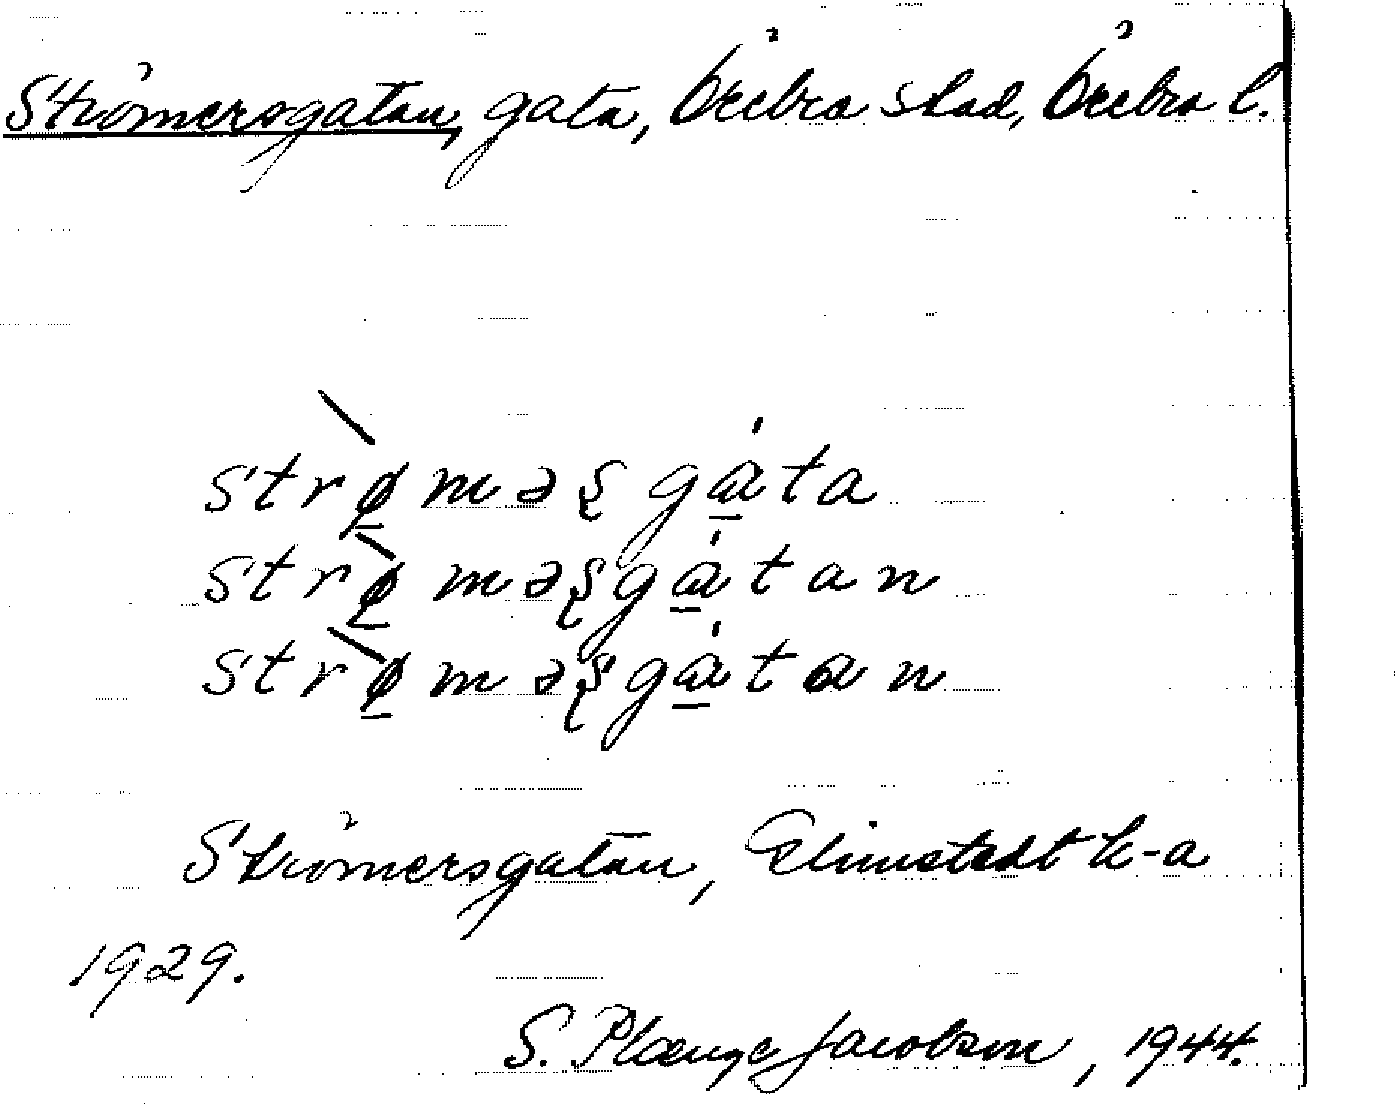 Strömersgatan, gata, Örebro stad, Örebro l.
strø̱̀məʂgɑ̱́ta
strø̱̀məʂgɑ̱́tan
strø̱̀məʂgɑ̱́tɑn
Strömersgatan, Elmstedt k-a
1929.
S. Plænge Jacobson, 1944.